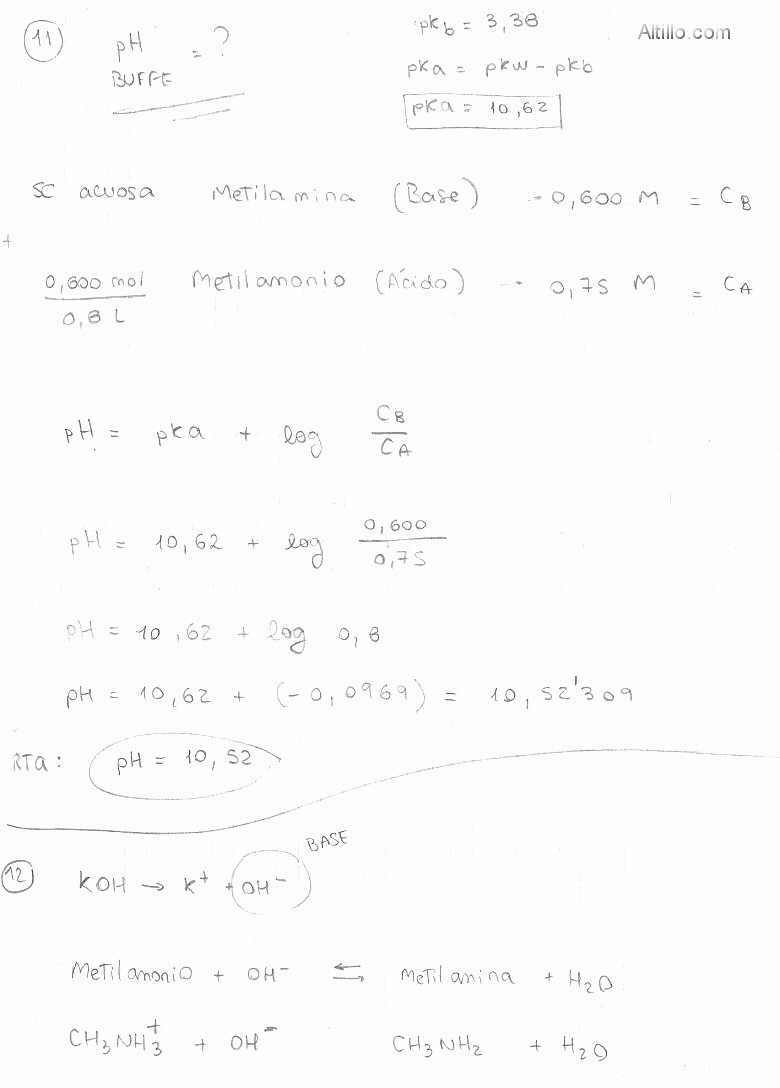 11) pH BUFFE = ?
pKb = 3,38
Altillo.com
pKa = pKw - pKb
pKa = 10,62
SC acuosa Metilamina (Base) - 0,600 M = CB
+
0,600 mol / 0,8 L Metilamonio (Ácido) - 0,75 M = CA
pH = pKa + log CB / CA
pH = 10,62 + log 0,600 / 0,75
pH = 10,62 + log 0,8
pH = 10,62 + (-0,0969) = 10,52'309
RTa: pH = 10,52
BASE
12) KOH → K+ + OH-
Metilamonio + OH- ⇆ Metilamina + H2O
CH3NH3+ + OH- CH3NH2 + H2O